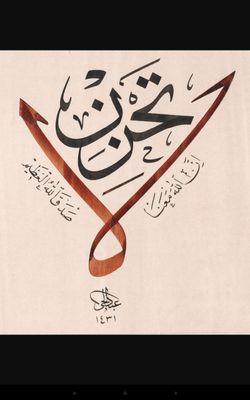 لا تحزن
إن الله معنا
صدق الله العظيم
١٤٣١